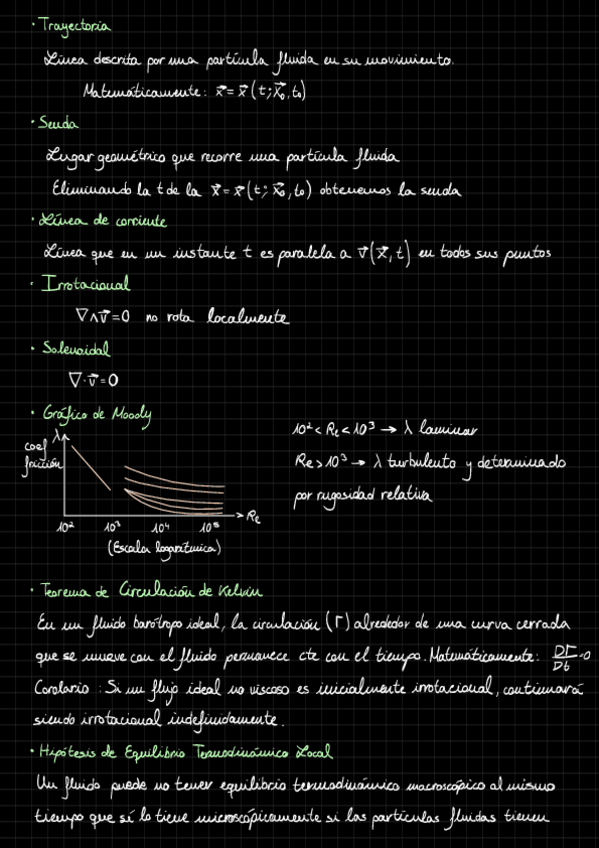 · Trayectoria
Línea descrita por una partícula fluida en su movimiento.
Matemáticamente: x⃗ = x⃗ (t; x⃗₀, t₀)
· Senda
Lugar geométrico que recorre una partícula fluida
Eliminando la t de la x⃗ = x⃗ (t; x⃗₀, t₀) obtenemos la senda
· Línea de corriente
Línea que en un instante t es paralela a v⃗(x⃗, t) en todos sus puntos
· Irrotacional
∇∧v⃗ = 0 no rota localmente
· Solenoidal
∇·v⃗ = 0
· Gráfico de Moody
λ
coef
fricción
10² 10³ 10⁴ 10⁵ Re
(Escala logarítmica)
10² < Re < 10³ → λ laminar
Re > 10³ → λ turbulento y determinado
por rugosidad relativa
· Teorema de Circulación de Kelvin
En un fluido barótropo ideal, la circulación (Γ) alrededor de una curva cerrada
que se mueve con el fluido permanece cte con el tiempo. Matemáticamente: DΓ/Dt = 0
Corolario: Si un flujo ideal no viscoso es inicialmente irrotacional, continuará
siendo irrotacional indefinidamente.
· Hipótesis de Equilibrio Termodinámico Local
Un fluido puede no tener equilibrio termodinámico macroscópico al mismo
tiempo que sí lo tiene microscópicamente si las partículas fluidas tienen